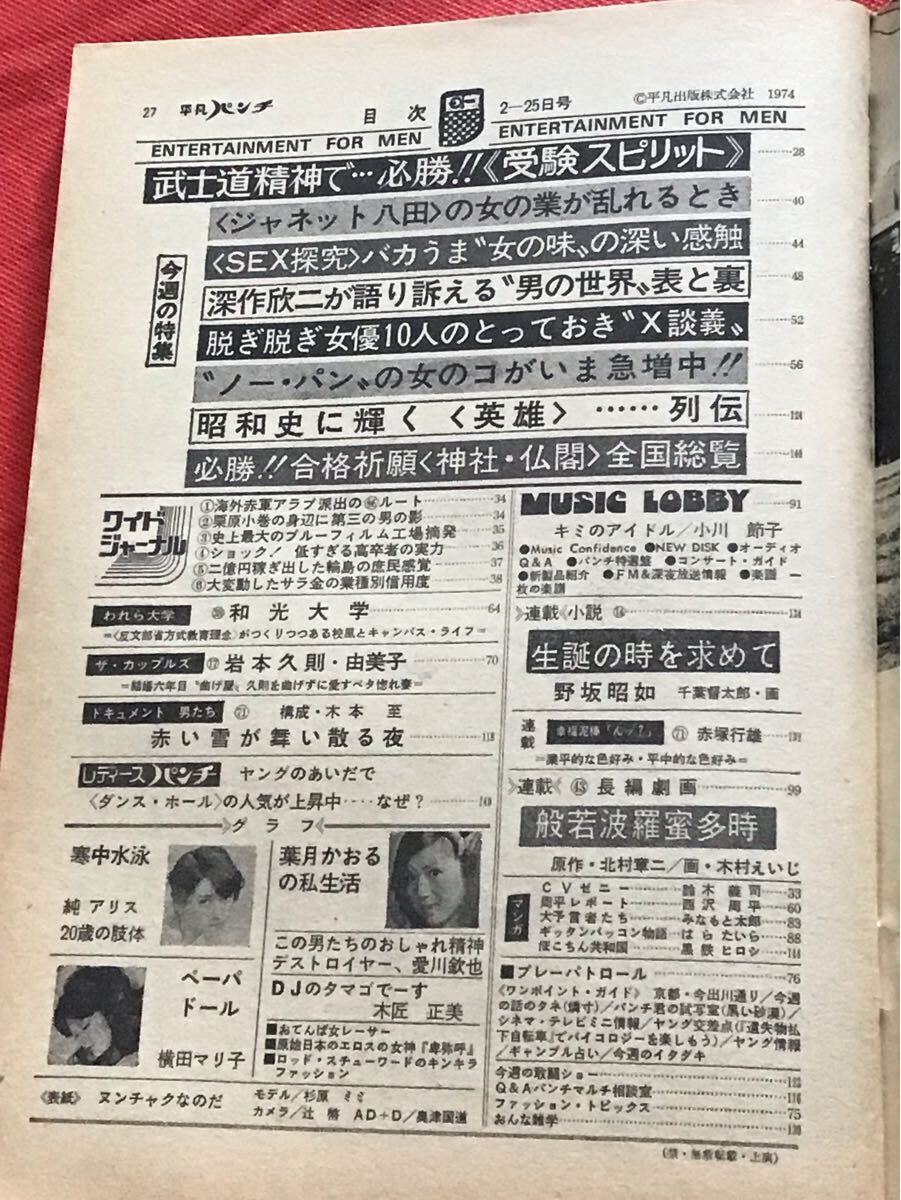 27 平凡パンチ
目次
2―25日号
©平凡出版株式会社 1974
ENTERTAINMENT FOR MEN
ENTERTAINMENT FOR MEN
今週の特集
武士道精神で…必勝!!《受験スピリット》……28
〈ジャネット八田〉の女の業が乱れるとき……40
〈SEX探究〉バカうま〝女の味〟の深い感触……44
深作欣二が語り訴える〝男の世界〟表と裏……48
脱ぎ脱ぎ女優10人のとっておき〝X談義〟……52
〝ノー・パン〟の女のコがいま急増中!!……56
昭和史に輝く〈英雄〉……列伝……124
必勝!!合格祈願〈神社・仏閣〉全国総覧……140
ワイドジャーナル
①海外赤軍アラブ派出の㊙ルート……34
②栗原小巻の身辺に第三の男の影……34
③史上最大のブルーフィルム工場摘発……35
④ショック! 低すぎる高卒者の実力……36
⑤二億円稼ぎ出した輪島の庶民感覚……37
⑥大変動したサラ金の業種別信用度……38
われら大学 和光大学……64
=〈反文部省方式教育理念〉がつくりつつある校風とキャンパス・ライフ=
ザ・カップルズ ⑰ 岩本久則・由美子……70
=結婚六年目〝曲げ屋〟久則を曲げずに愛すベタ惚れ妻=
ドキュメント 男たち ㉑ 構成・木本 至
赤い雪が舞い散る夜……118
レディースパンチ ヤングのあいだで
〈ダンス・ホール〉の人気が上昇中……なぜ?……149
》グラフ《
寒中水泳
純 アリス
20歳の肢体
ペーパードール
横田マリ子
葉月かおるの私生活
この男たちのおしゃれ精神
デストロイヤー、愛川欽也
DJのタマゴでーす
木匠 正美
■おてんば女レーサー
■原始日本のエロスの女神『卑弥呼』
■ロッド・スチューワードのキンキラファッション
《表紙》 ヌンチャクなのだ
モデル/杉原 ミミ
カメラ/辻 幣 AD+D/奥津国道
MUSIC LOBBY……91
キミのアイドル/小川 節子
●Music Confidence ●NEW DISK ●オーディオ
Q&A ●パンチ特選盤 ●コンサート・ガイド
●新製品紹介 ●FM&深夜放送情報 ●楽譜 一
枚の楽譜
》連載《小説 ⑭……134
生誕の時を求めて
野坂昭如 千葉督太郎・画
連載 幸福泥棒「んッ?」 ㉑ 赤塚行雄……132
=業平的な色好み・平中的な色好み=
》連載《 ㊸ 長編劇画……99
般若波羅蜜多時
原作・北村章二/画・木村えいじ
マンガ
CVゼニー……鈴木義司……33
周平レポート……西沢周平……60
大予言者たち……みなもと太郎……83
ギッタンバッコン物語……はらたいら……88
ぽこちん共和国……黒鉄ヒロシ……144
■プレーパトロール……76
《ワンポイント・ガイド》 京都・今出川通り/今週
の話のタネ(燐寸)/パンチ君の試写室(黒い砂漠)/
シネマ・テレビミニ情報/ヤング交差点(『遺失物払
下自転車』でバイコロジーを楽しもう)/ヤング情報
/ギャンブル占い/今週のイタダキ
今週の敢闘ショー……123
Q&Aパンチマルチ相談室……116
ファッション・トピックス……75
おんな雑学……139
(禁・無断転載・上演)